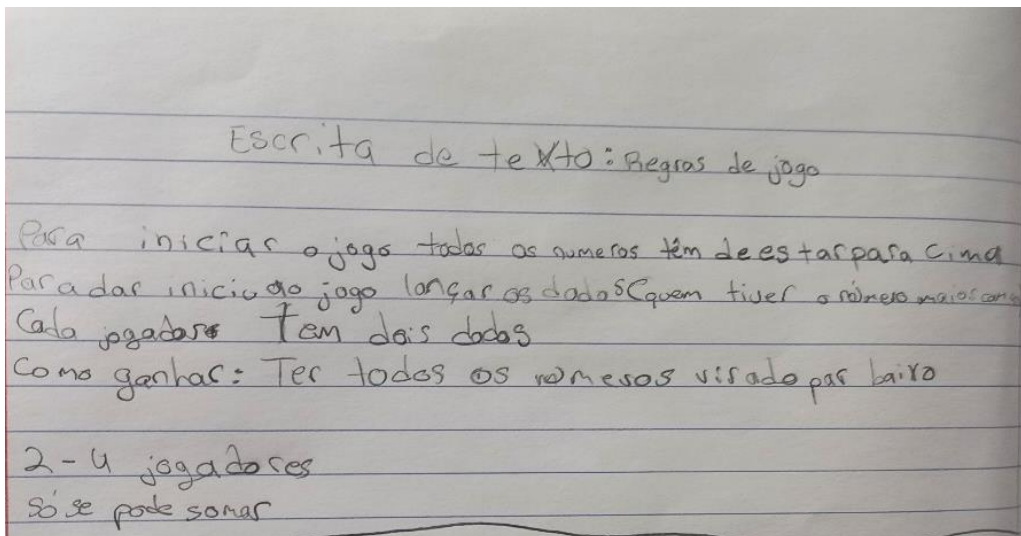 Escrita de texto: Regras de jogo
Para iniciar o jogo todos os numeros têm de estar para cima
Para dar inicio ao jogo lançar os dados (quem tiver o número maior
Cada jogador Tem dois dados
Como ganhar: Ter todos os números virado par baixo
2-4 jogadores
Só se pode somar